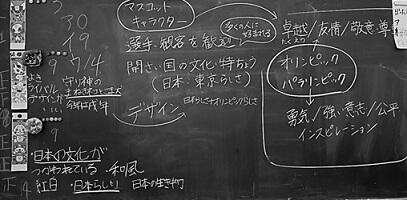 マスコット
キャラクター
多くの人に
好まれる
選手・観客を歓迎
開さい国の文化・特ちょう
(日本・東京らしさ)
日本らしさ+オリンピックらしさ
デザイン
卓越/友情/敬意・尊
たくえつ
オリンピック
パラリンピック
勇気/強い意志/公平
インスピレーション
30
19
9
ライバル
デザインが
守り神の
まねきねこ
今年は戌年
9
・日本の文化が
つかわれている
・和風
・紅白
・日本らしい
日本の生き物
正